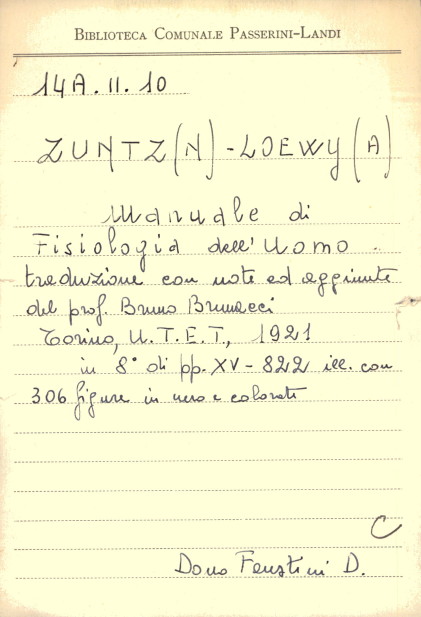 BIBLIOTECA COMUNALE PASSERINI-LANDI
14A.II.10
ZUNTZ (N) - LOEWY (A)
Manuale di
Fisiologia dell'Uomo.
traduzione con note ed aggiunte
del prof. Bruno Brunacci
Torino, U.T.E.T., 1921
in 8° di pp. XV - 822 ill. con
306 figure in nero e colorate
C
Dono Faustini D.